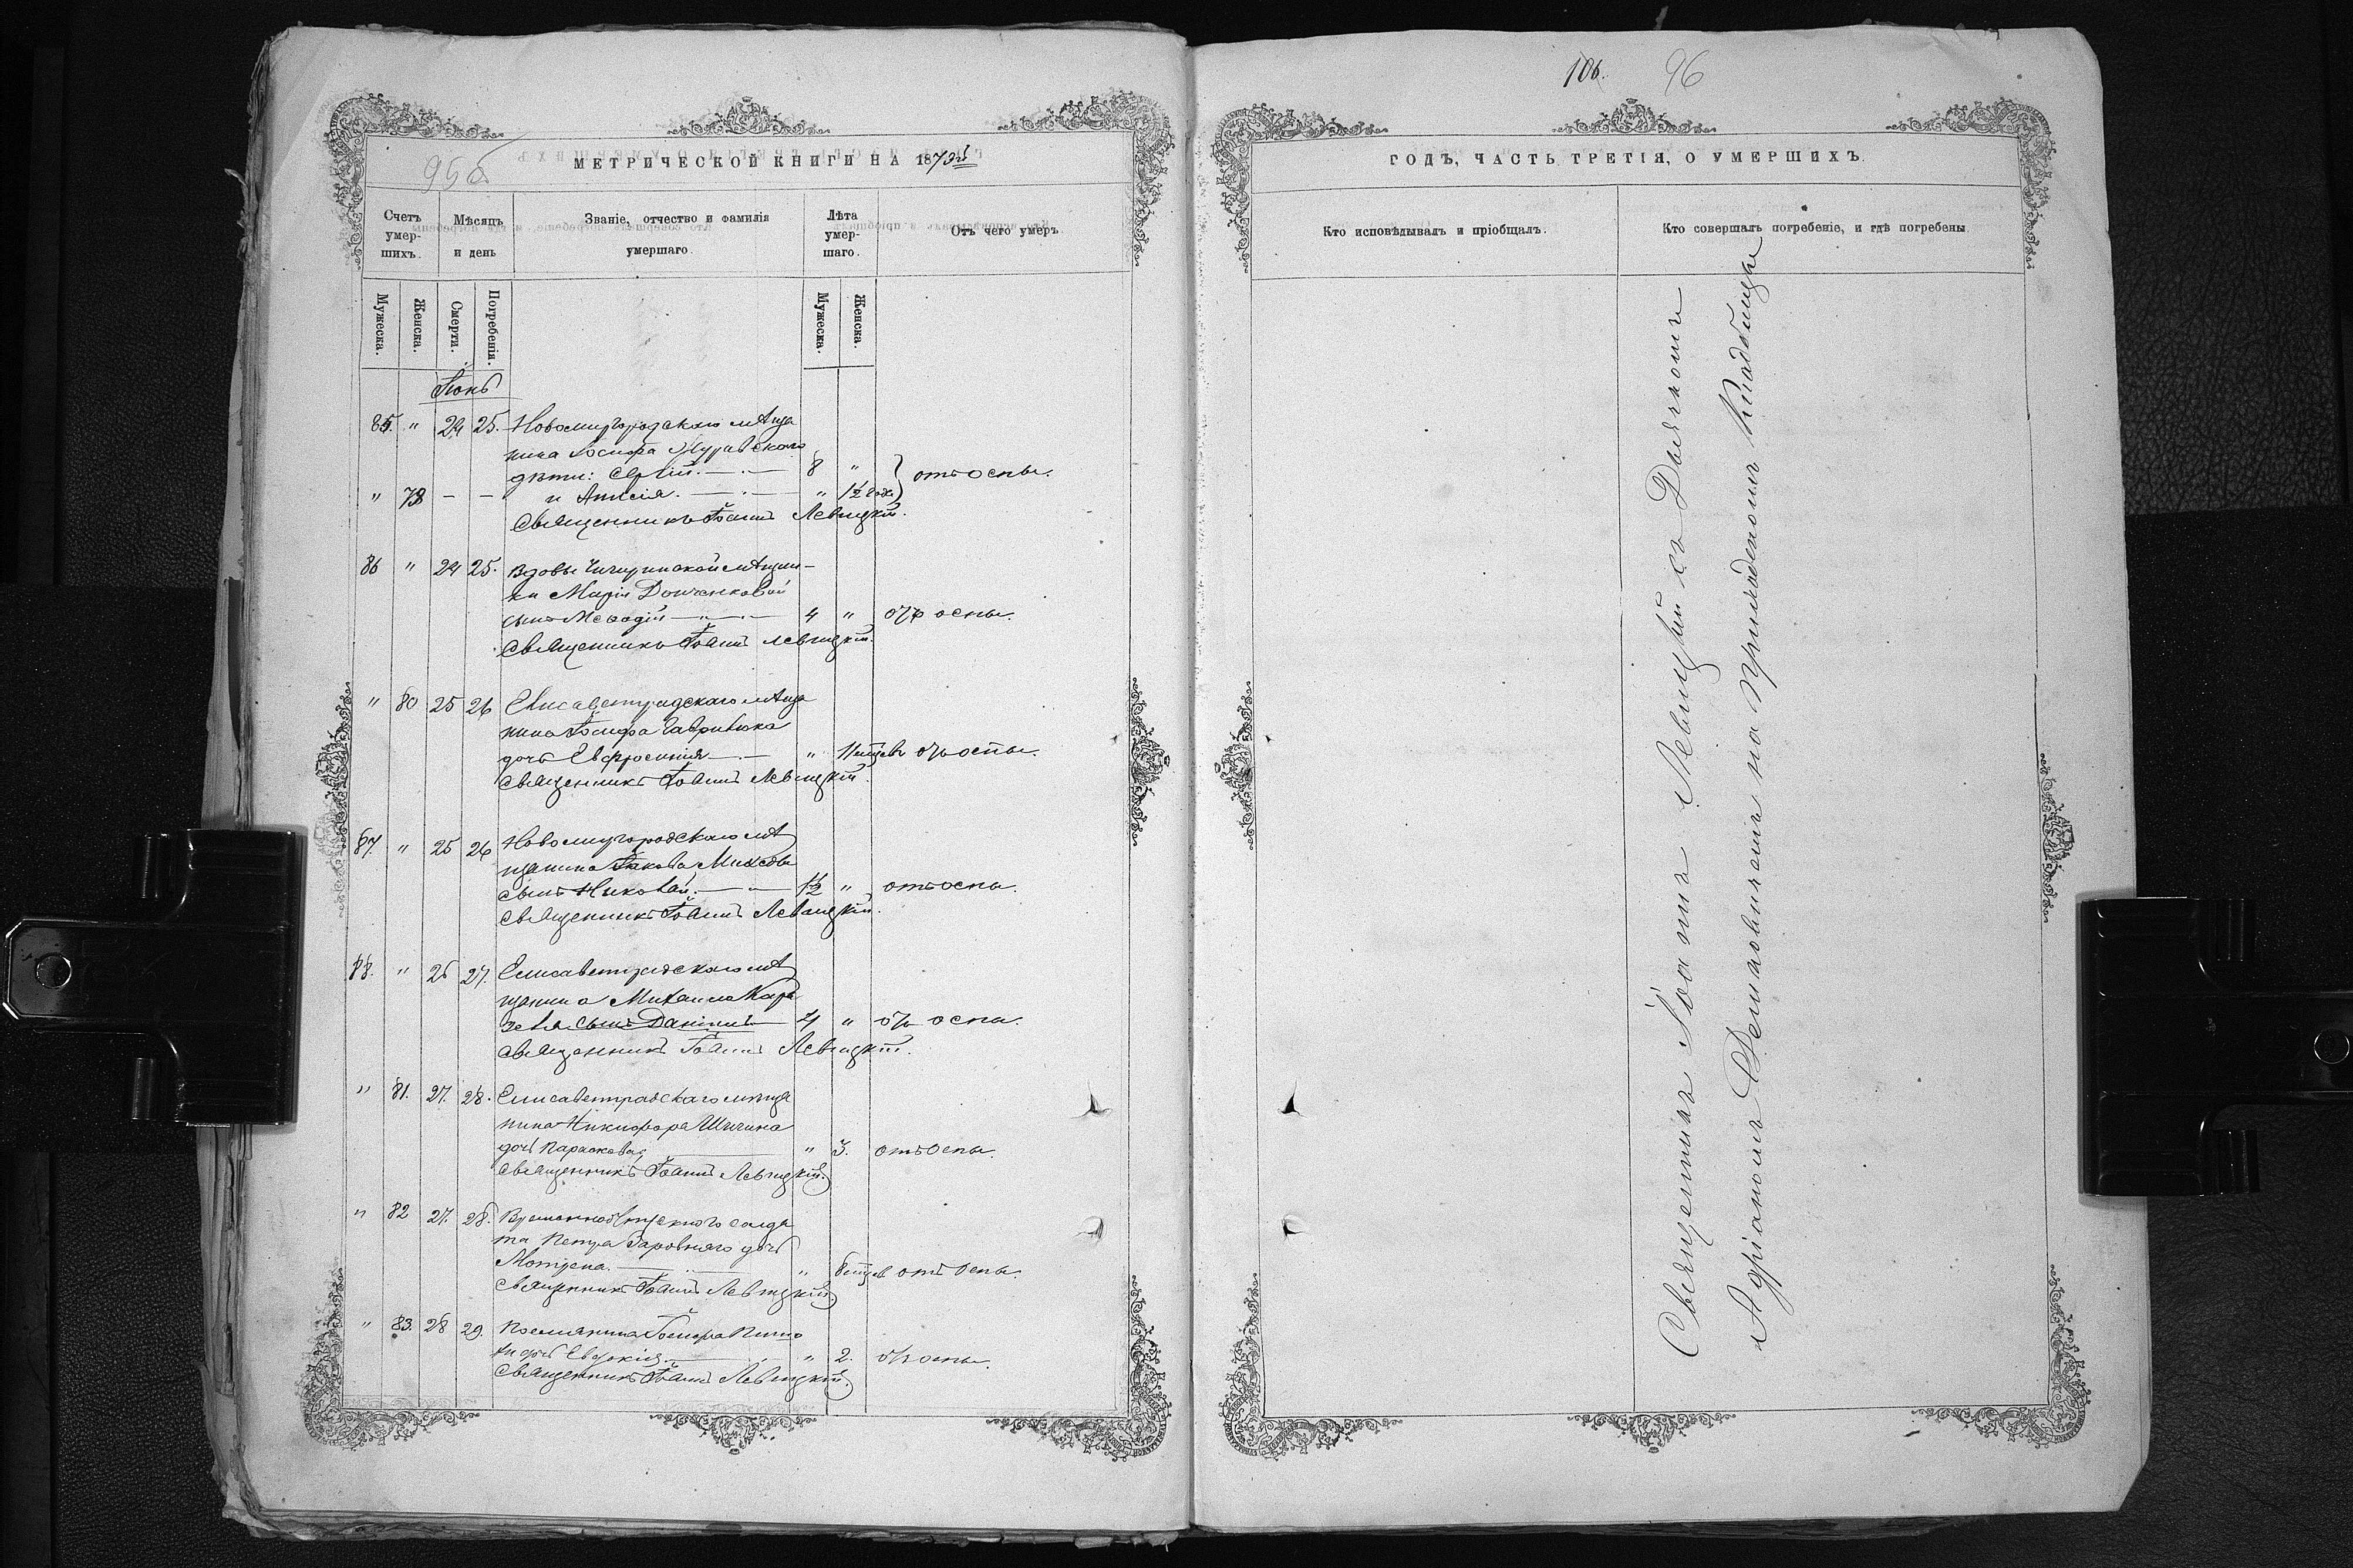 95 б.
МЕТРИЧЕСКОЙ КНИГИ НА 1873й
Счетъ умер-шихъ.
Мѣсяцъ и день
Званіе, отчество и фамилія умершаго.
Лѣта умер-шаго.
Отъ чего умеръ.
Мужеска. Женска. Смерти. Погребенія. Мужеска. Женска.
Іюнь
85. " 24 25. Новомиргородскаго мѣща
нина Іосифа Журавскаго
дѣти: Сергій. 8 " отъ оспы.
" 78 - - и Анисія. " 1½ года
Священникъ Іоаннъ Левицкій.
86 " 24 25. Вдовы Чигиринской мѣщан-
ки Маріи Донченковой
сынъ Меѳодій 4 " отъ оспы.
Священникъ Іоаннъ Левицкій.
" 80 25 26 Елисаветградскаго мѣща
нина Іосифа Гаврилюка
дочь Евфросинія " 11 мѣсяцевъ отъ оспы.
Священникъ Іоаннъ Левицкій.
87. " 25 26 Новомиргородскаго мѣ
щанина Іакова
сынъ Николай. 1½ " отъ оспы.
Священникъ Іоаннъ Левицкій.
88. " 26 27. Елисаветградскаго мѣ
щанина Михаила
сынъ Даніилъ 4 " отъ оспы.
Священникъ Іоаннъ Левицкій.
" 81. 27. 28. Елисаветградскаго мѣща
нина Никифора
дочь Параскева, " 3. отъ оспы.
Священникъ Іоаннъ Левицкій.
" 82 27. 28. Временноотпускного солда
та Петра дочь
Мотрона. " 8 мѣсяцевъ отъ оспы.
Священникъ Іоаннъ Левицкій.
" 83. 28 29. Поселянина Іосифа
дочь Евдокія. " 2. отъ оспы.
Священникъ Іоаннъ Левицкій.
106. 96
ГОДЪ, ЧАСТЬ ТРЕТІЯ, О УМЕРШИХЪ.
Кто исповѣдывалъ и пріобщалъ.
Кто совершалъ погребеніе, и гдѣ погребены.
Священникъ Іоаннъ Левицкій съ Дьячкомъ
Адріаномъ Демяновичемъ на приходскомъ кладбищѣ